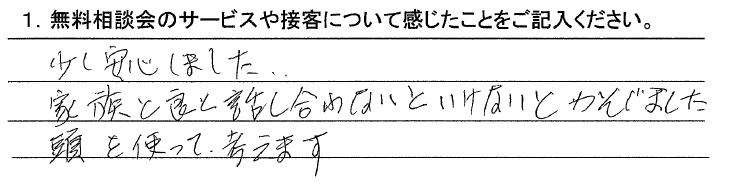 1. 無料相談会のサービスや接客について感じたことをご記入ください。
少し安心しました..
家族と良く話し合わないといけないとかんじました
頭を使って.考えます